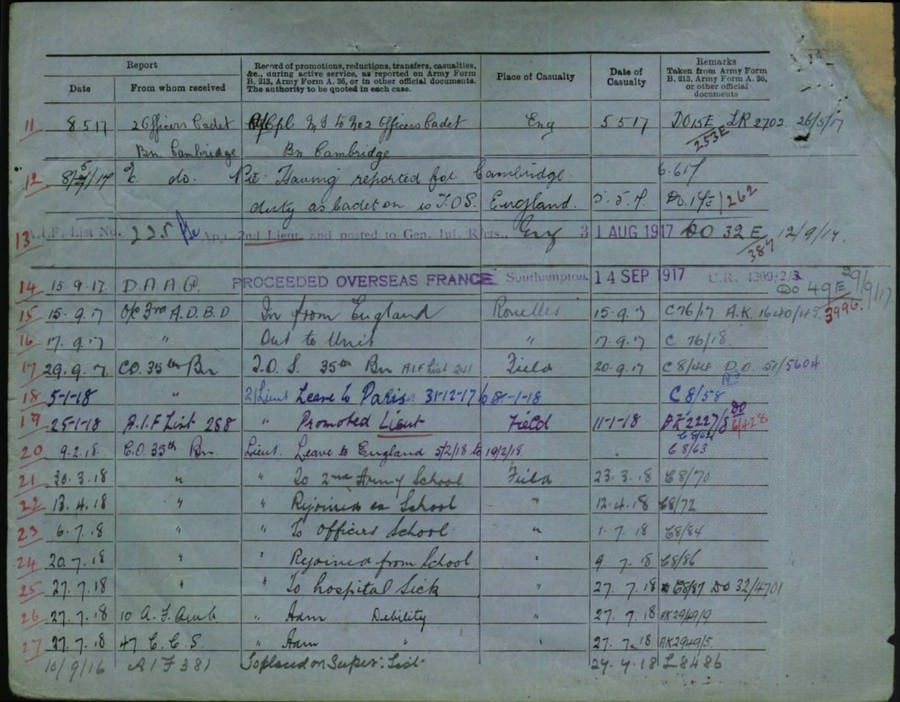 Report
Record of promotions, reductions, transfers, casualties, &c., during active service, as reported on Army Form B. 213, Army Form A. 36, or in other official documents. The authority to be quoted in each case.
Place of Casualty
Date of Casualty
Remarks Taken from Army Form B. 213, Army Form A. 36, or other official documents
Date From whom received
11 8 5 17 2 Officers Cadet to No 2 Officers Cadet Eng 5 5 17 DO 15E LR 2702 26/5/17
Bn Cambridge Bn Cambridge 253E
12 do. Having reported for Cambridge
duty as Cadet on is T.O.S. England. 262
13 A.I.F. List No. 225 App. 2nd Lieut. and posted to Gen. Inf. Rfts., Eng 31 AUG 1917 DO 32 E 12/9/17.
387
14 15.9.17 D.A.A.G. PROCEEDED OVERSEAS FRANCE Southampton 14 SEP 1917 C.R. 1309/2/3
DO 49E 29/9/17
15 15.9.7 o/c 3rd A.D.B.D In from England Rouelles 15.9.7 C76/17 A.K. 399G.
16 17.9.7 " Out to Unit " 17.9.7 C 76/18.
17 29.9.7 CO. 35th Bn T.O.S. 35th Bn AIF List 241 Field 20.9.17 C8/44 D.O. 51/5604
18 5-1-18 " 2/Lieut Leave to Paris 31-12-17 to 8-1-18 C8/58
19 25-1-18 A.I.F List 268 " Promoted Lieut Field 11-1-18 AK2227/8 DO 6/428
C8/62
20 9.2.18 C.O. 35th Bn. Lieut. Leave to England 5/2/18 to 19/2/18 C8/63
21 30.3.18 " " To 2nd Army School Field 23.3.18 C8/70
22 13.4.18 " " Rejoined ex School " 12.4.18 C8/72
23 6.7.8 " " To Officers School " 1.7.18 C8/84
24 20.7.18 " " Rejoined from School " 9 7.18 C8/86
25 27.7.18 " " To hospital Sick " 27.7.18 C8/87 DO 32/4701
26 27.7.18 10 A.F. Amb " Adm Debility " 27.7.18 AK2949/9
27 27.7.18 47 C.C.S " Adm " " 27.7.18 AK2949/5.
10/9/16 AIF 381 placed on Super: List 27.7.18 L8486